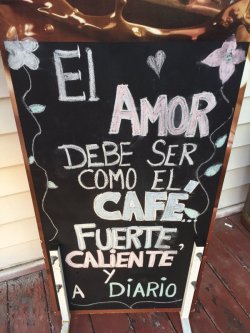 El
AMOR
DEBE SER
COMO EL
CAFÉ..
FUERTE,
CALIENTE
Y
A DIARIO